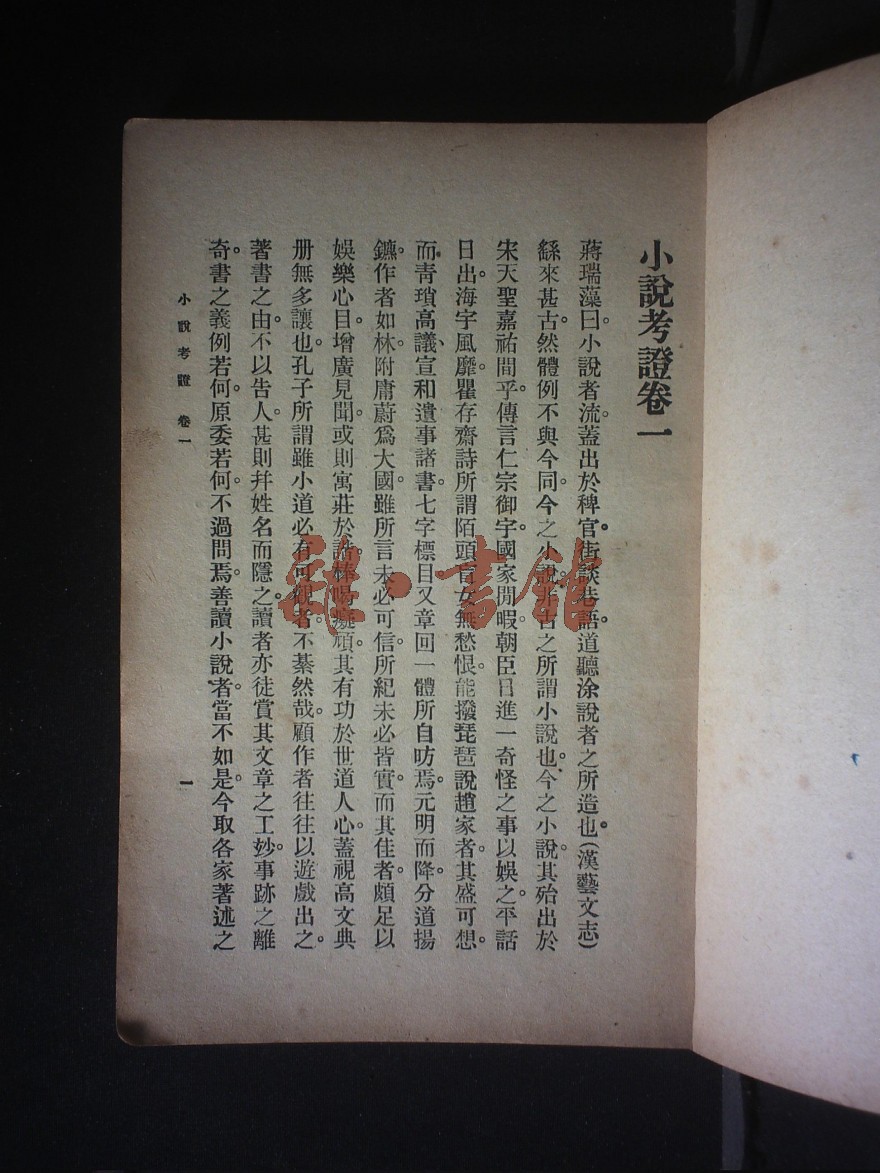 小說考證卷一
蔣瑞藻曰。小說者流。蓋出於稗官。街談巷語。道聽涂說者之所造也。(漢藝文志)
繇來甚古。然體例不與今同。今之小說。非古之所謂小說也。今之小說。其殆出於
宋天聖嘉祐間乎。傳言仁宗御宇。國家閒暇。朝臣日進一奇怪之事以娛之。平話
日出。海宇風靡。瞿存齋詩所謂陌頭盲女無愁恨。能撥琵琶說趙家者。其盛可想。
而靑瑣高議、宣和遺事諸書。七字標目。又章回一體所自昉焉。元明而降。分道揚
鑣。作者如林。附庸蔚爲大國。雖所言未必可信。所紀未必皆實。而其佳者。頗足以
娛樂心目。增廣見聞。或則寓莊於諧。棒喝癡頑。其有功於世道人心。蓋視高文典
册無多讓也。孔子所謂雖小道必有可觀者。不綦然哉。顧作者往往以遊戲出之。
著書之由。不以告人。甚則幷姓名而隱之。讀者亦徒賞其文章之工妙。事跡之離
奇。書之義例若何。原委若何。不過問焉。善讀小說者。當不如是。今取各家著述之
小說考證 卷一
一
雜·書館